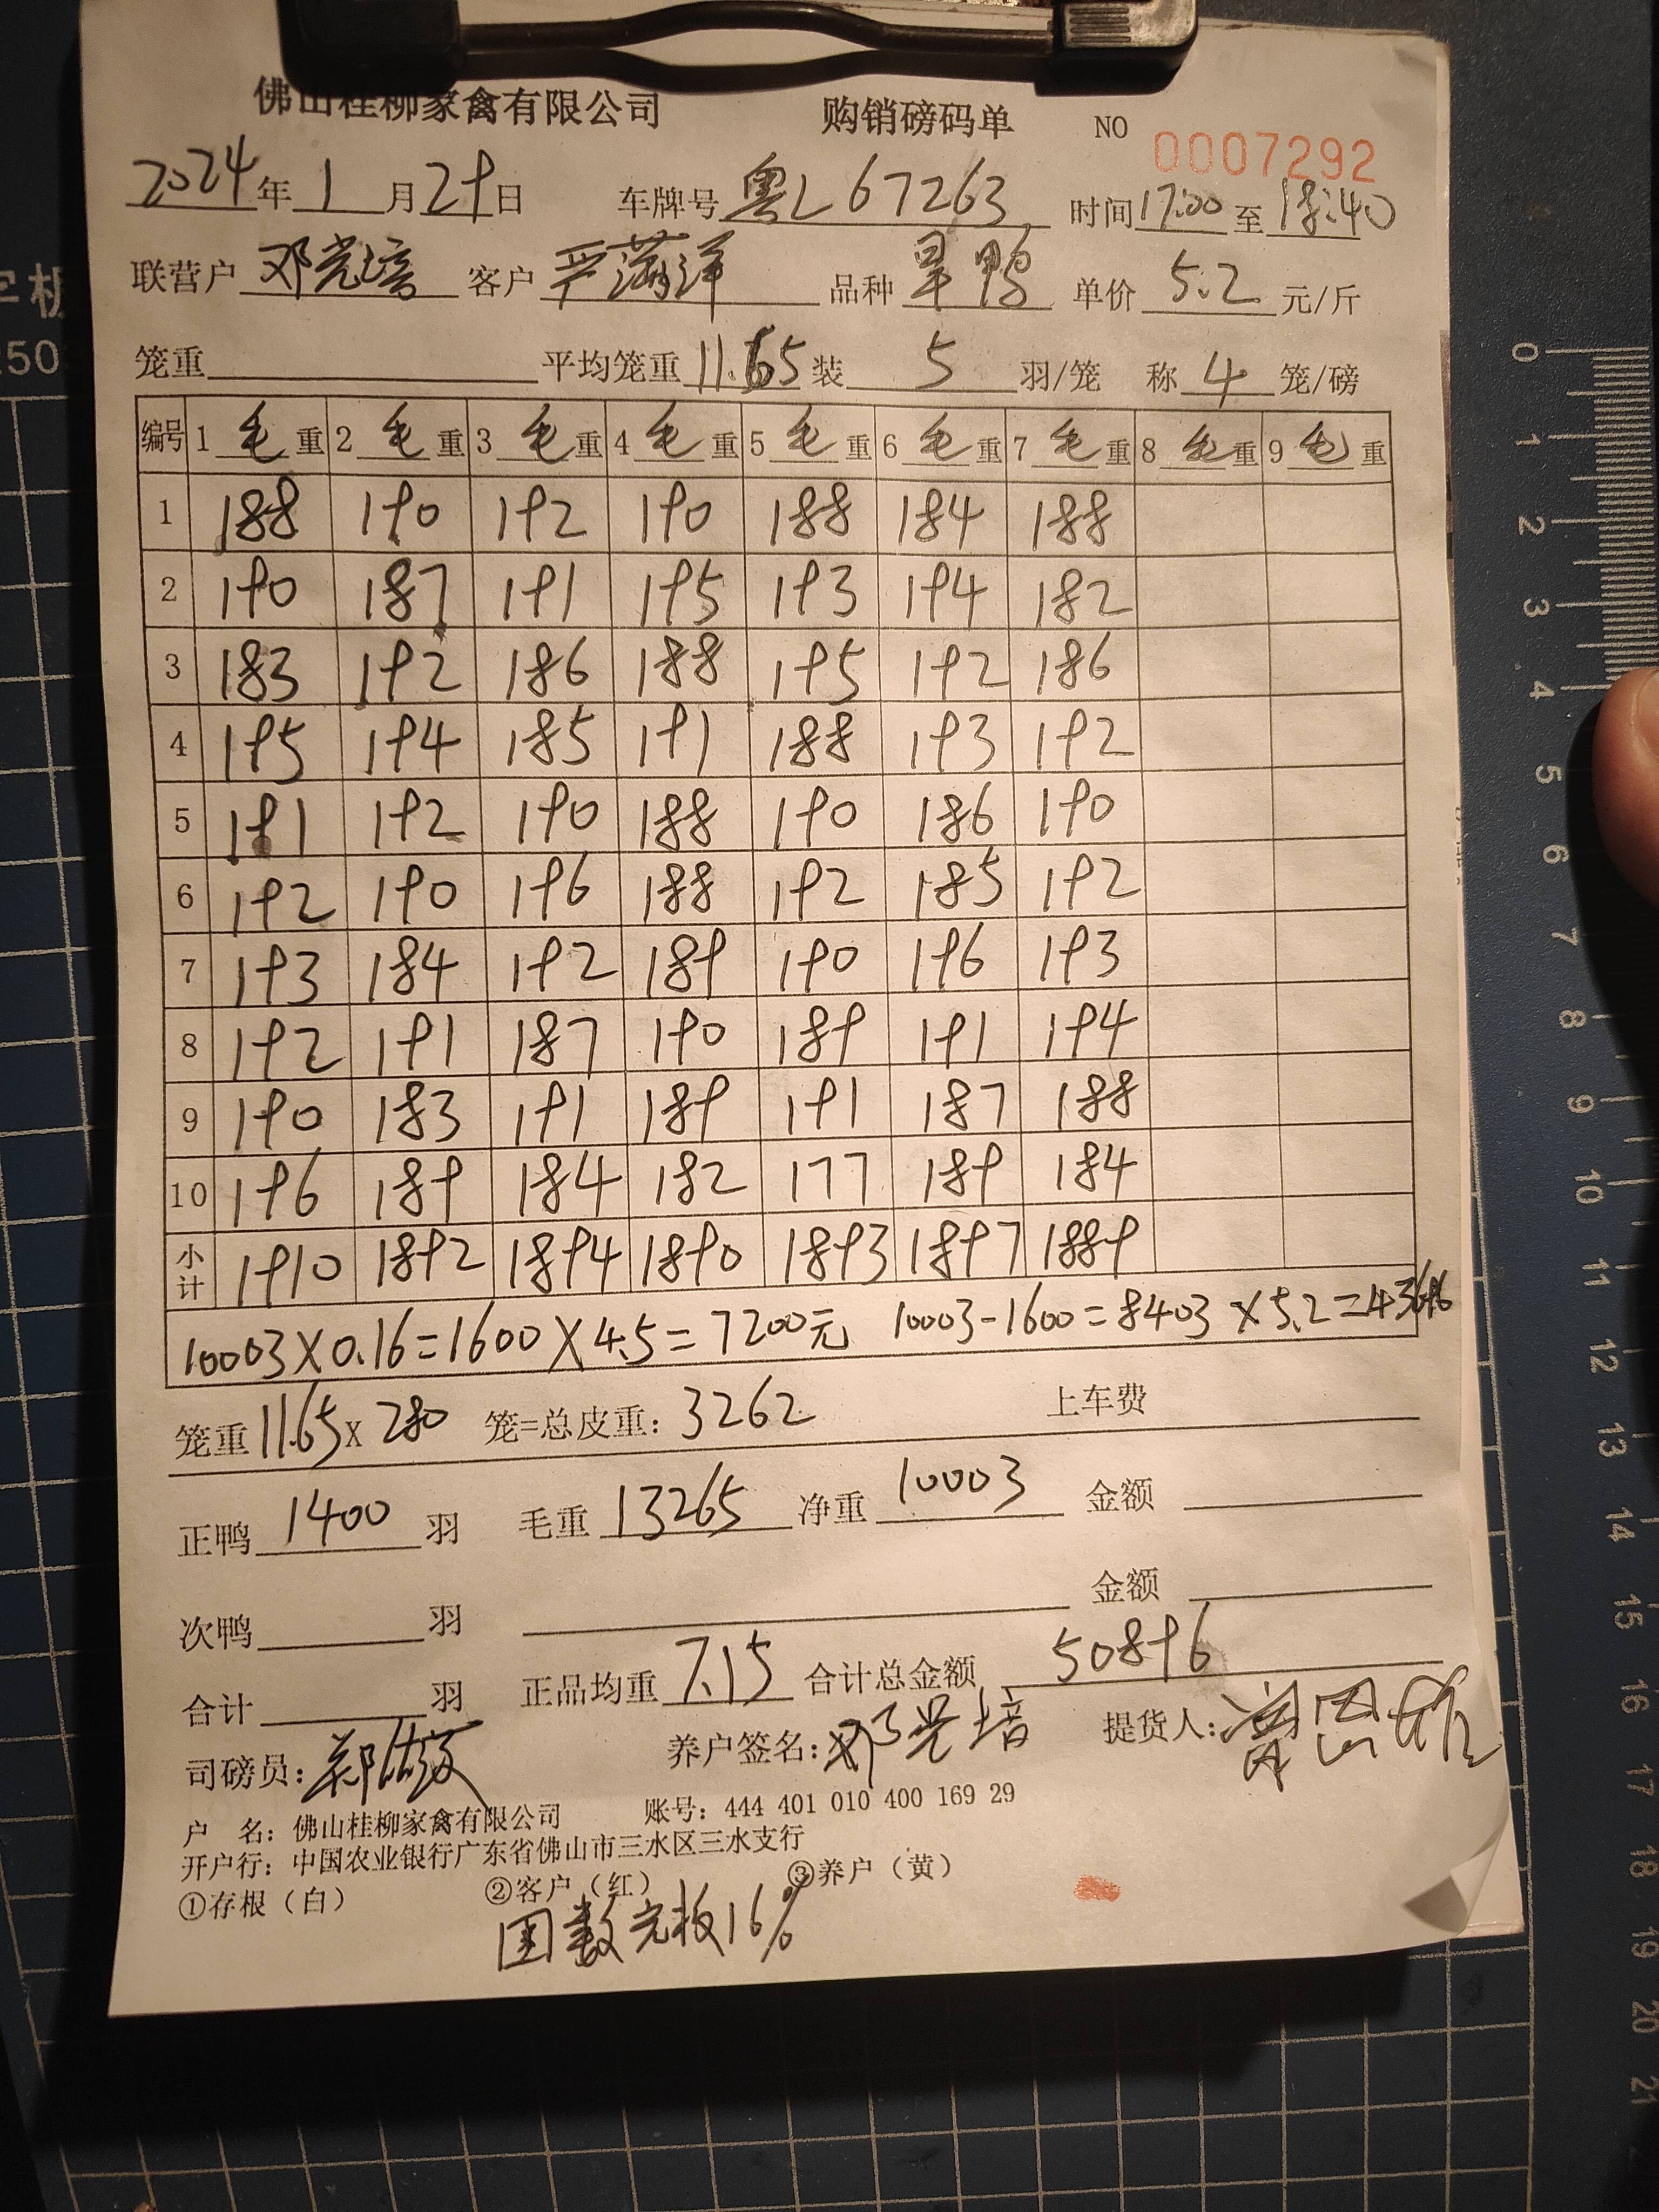 佛山桂柳家禽有限公司 购销磅码单 NO 0007292
2024年1月29日 车牌号 粤L67263 时间17:00至18:40
联营户 邓光培 客户 严满洋 品种 旱鸭 单价 5.2 元/斤
笼重 平均笼重 11.65 装 5 羽/笼 称 4 笼/磅
编号 1毛重 2毛重 3毛重 4毛重 5毛重 6毛重 7毛重 8毛重 9毛重
1 188 190 192 190 188 184 188
2 190 187 191 195 193 194 182
3 183 192 186 188 195 192 186
4 195 194 185 191 188 193 192
5 191 192 190 188 190 186 190
6 192 190 196 188 192 185 192
7 193 184 192 189 190 196 193
8 192 191 187 190 189 191 194
9 190 183 191 189 191 187 188
10 196 189 184 182 177 189 184
小计 1910 1892 1894 1890 1893 1897 1889
10003×0.16=1600×4.5=7200元 10003-1600=8403×5.2=43696
笼重 11.65 X 280 笼=总皮重：3262 上车费
正鸭 1400 羽 毛重 13265 净重 10003 金额
次鸭 羽 金额
合计 羽 正品均重 7.15 合计总金额 50896
司磅员： 养户签名：邓光培 提货人：
户 名：佛山桂柳家禽有限公司 账号：444 401 010 400 169 29
开户行：中国农业银行广东省佛山市三水区三水支行
①存根（白） ②客户（红） ③养户（黄）
16%
0 1 2 3 4 5 6 7 8 9 10 11 12 13 14 15 16 17 18 19 20 21